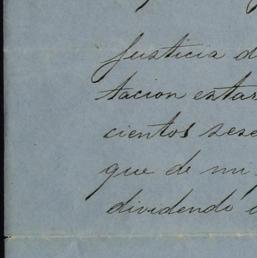 Justicia d
tacion estas
cientos sese
que de mi
dividendo